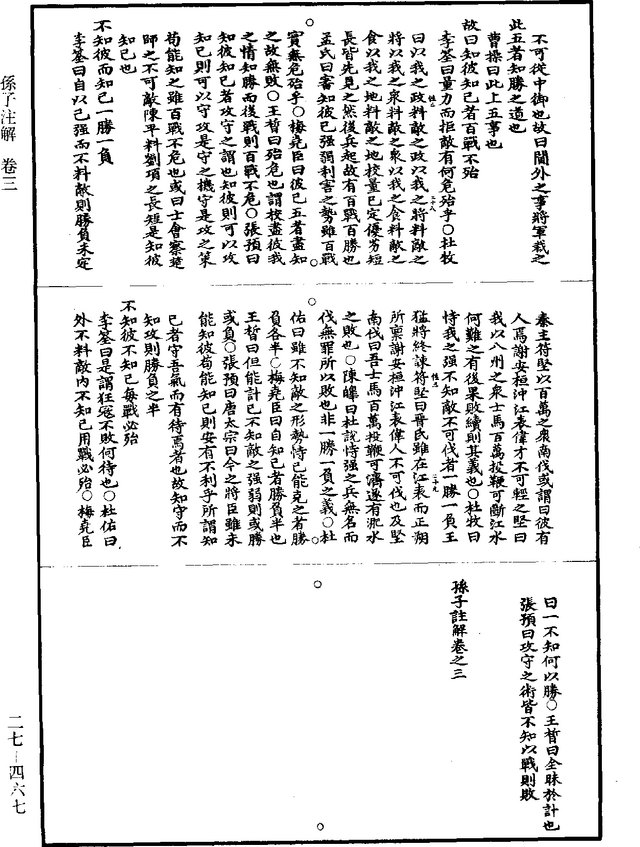 孫子注解 卷三
不可從中御也故曰閫外之事將軍裁之
此五者知勝之道也
曹操曰此上五事也
故曰知彼知己者百戰不殆
李筌曰量力而拒敵有何危殆乎○杜牧
曰以我之政料敵之政以我之將料敵之
將以我之衆料敵之衆以我之食料敵之
食以我之地料敵之地校量已定優劣短
長皆先見之然後兵起故有百戰百勝也
孟氏曰審知彼己强弱利害之勢雖百戰
實無危殆乎○梅堯臣曰彼己五者盡知
之故無敗○王晳曰殆危也謂校盡彼我
之情知勝而後戰則百戰不危○張預曰
知彼知己者攻守之謂也知彼則可以攻
知己則可以守攻是守之機守是攻之策
苟能知之雖百戰不危也或曰士會察楚
師之不可敵陳平料劉項之長短是知彼
知己也
不知彼而知己一勝一負
李筌曰自以己强而不料敵則勝負未定
秦主苻堅以百萬之衆南伐或謂曰彼有
人焉謝安桓沖江表偉才不可輕之堅曰
我以八州之衆士馬百萬投鞭可斷江水
何難之有後果敗績則其義也○杜牧曰
恃我之强不知敵不可伐者一勝一負王
猛將終諫苻堅曰晉氏雖在江表而正朔
所稟謝安桓沖江表偉人不可伐也及堅
南伐曰吾士馬百萬投鞭可濟遂有淝水
之敗也○陳皥曰杜說恃强之兵無名而
伐無罪所以敗也非一勝一負之義○杜
佑曰雖不知敵之形勢恃己能克之者勝
負各半○梅堯臣曰自知己者勝負半也
王晳曰但能計己不知敵之强弱則或勝
或負○張預曰唐太宗曰今之將臣雖未
能知彼苟能知己則安有不利乎所謂知
己者守吾氣而有待焉者也故知守而不
知攻則勝負之半
不知彼不知己每戰必殆
李筌曰是謂狂寇不敗何待也○杜佑曰
外不料敵內不知己用戰必殆○梅堯臣
曰一不知何以勝○王晳曰全昧於計也
張預曰攻守之術皆不知以戰則敗
孫子註解卷之三
二七-四六七